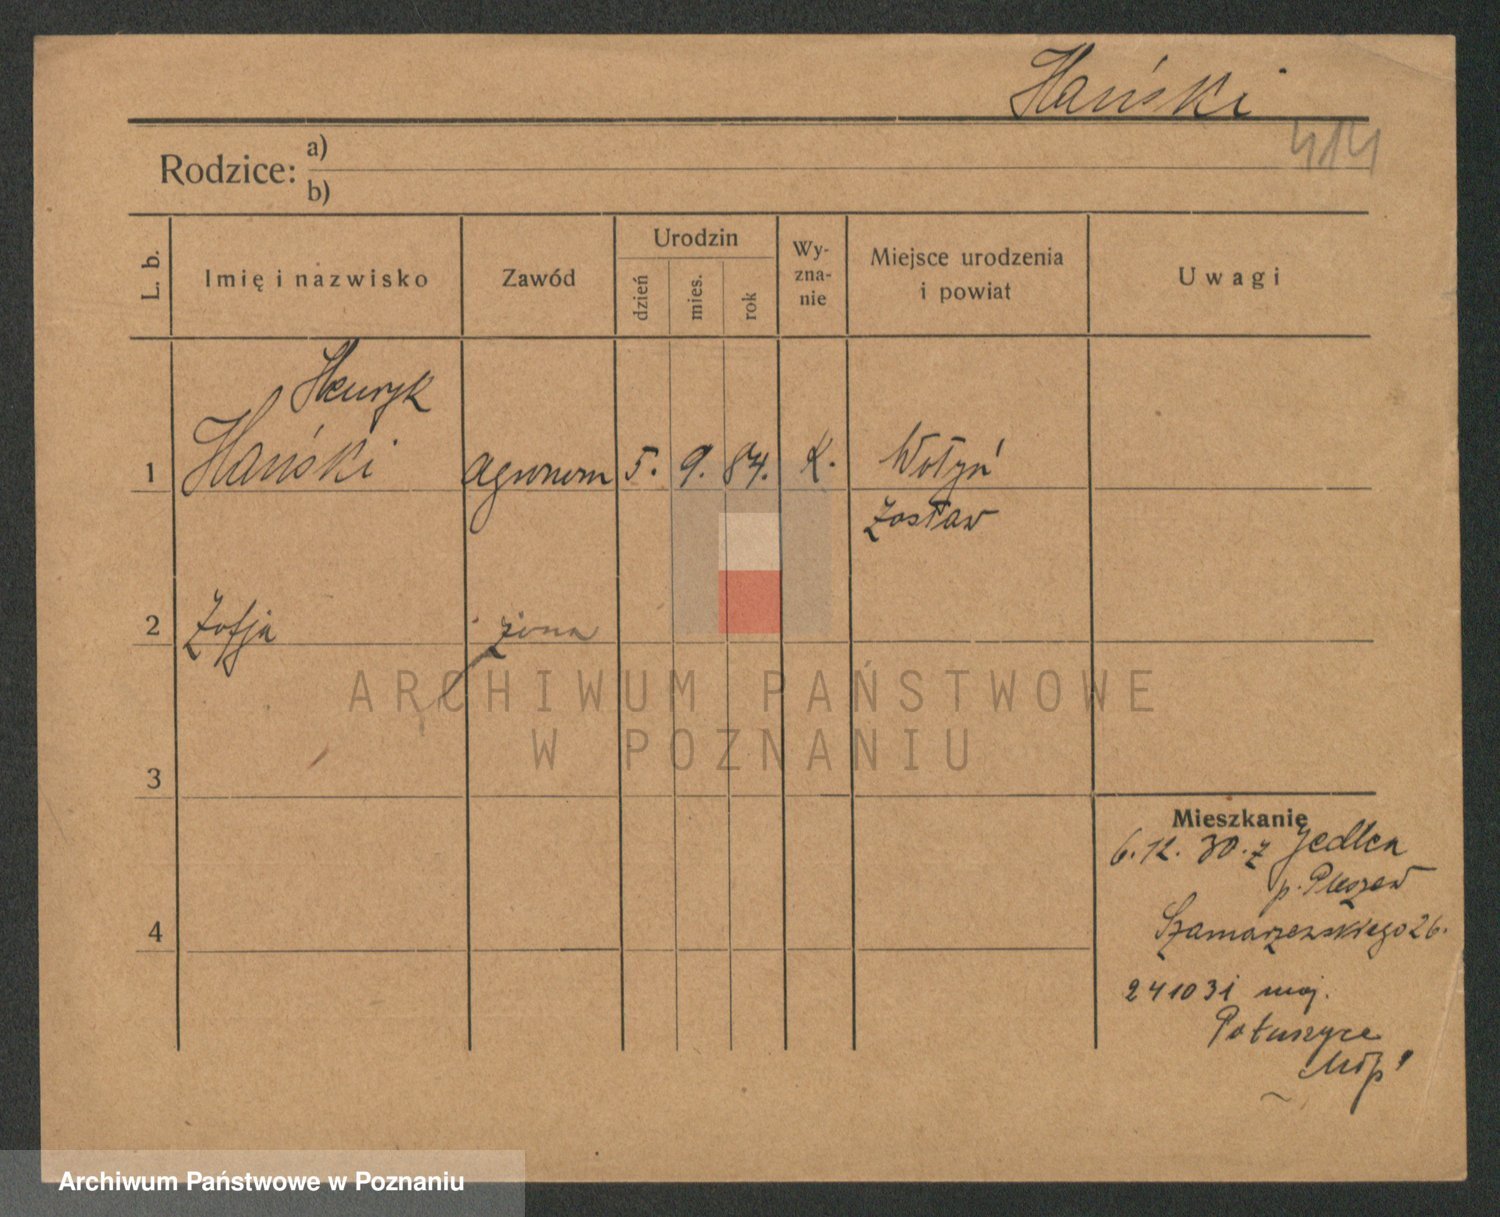 Hański
414
Rodzice: a)
b)
L. b.
Imię i nazwisko
Zawód
Urodzin
dzień
mies.
rok
Wy-
zna-
nie
Miejsce urodzenia
i powiat
Uwagi
Henryk
1 Hański agronom 5. 9. 84. K. Wołyń
Zosław
2 Zofja żona
3
4
Mieszkanie
6.12.30. z Jedlca
p. Pleszew
Szamarzewskiego 26.
241031 maj.
ARCHIWUM PAŃSTWOWE
W POZNANIU
Archiwum Państwowe w Poznaniu